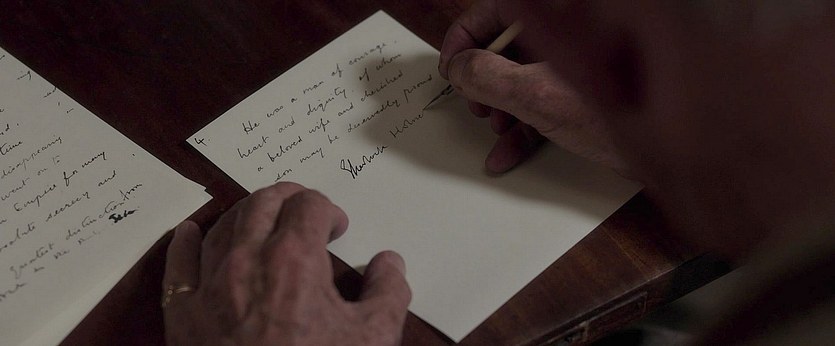 time
went on to
Empire for many
absolute secrecy and
greatest distinction from
in the
4.
He was a man of courage,
heart and dignity, of whom
a beloved wife and cherished
son may be deservedly proud
Sherlock Holmes